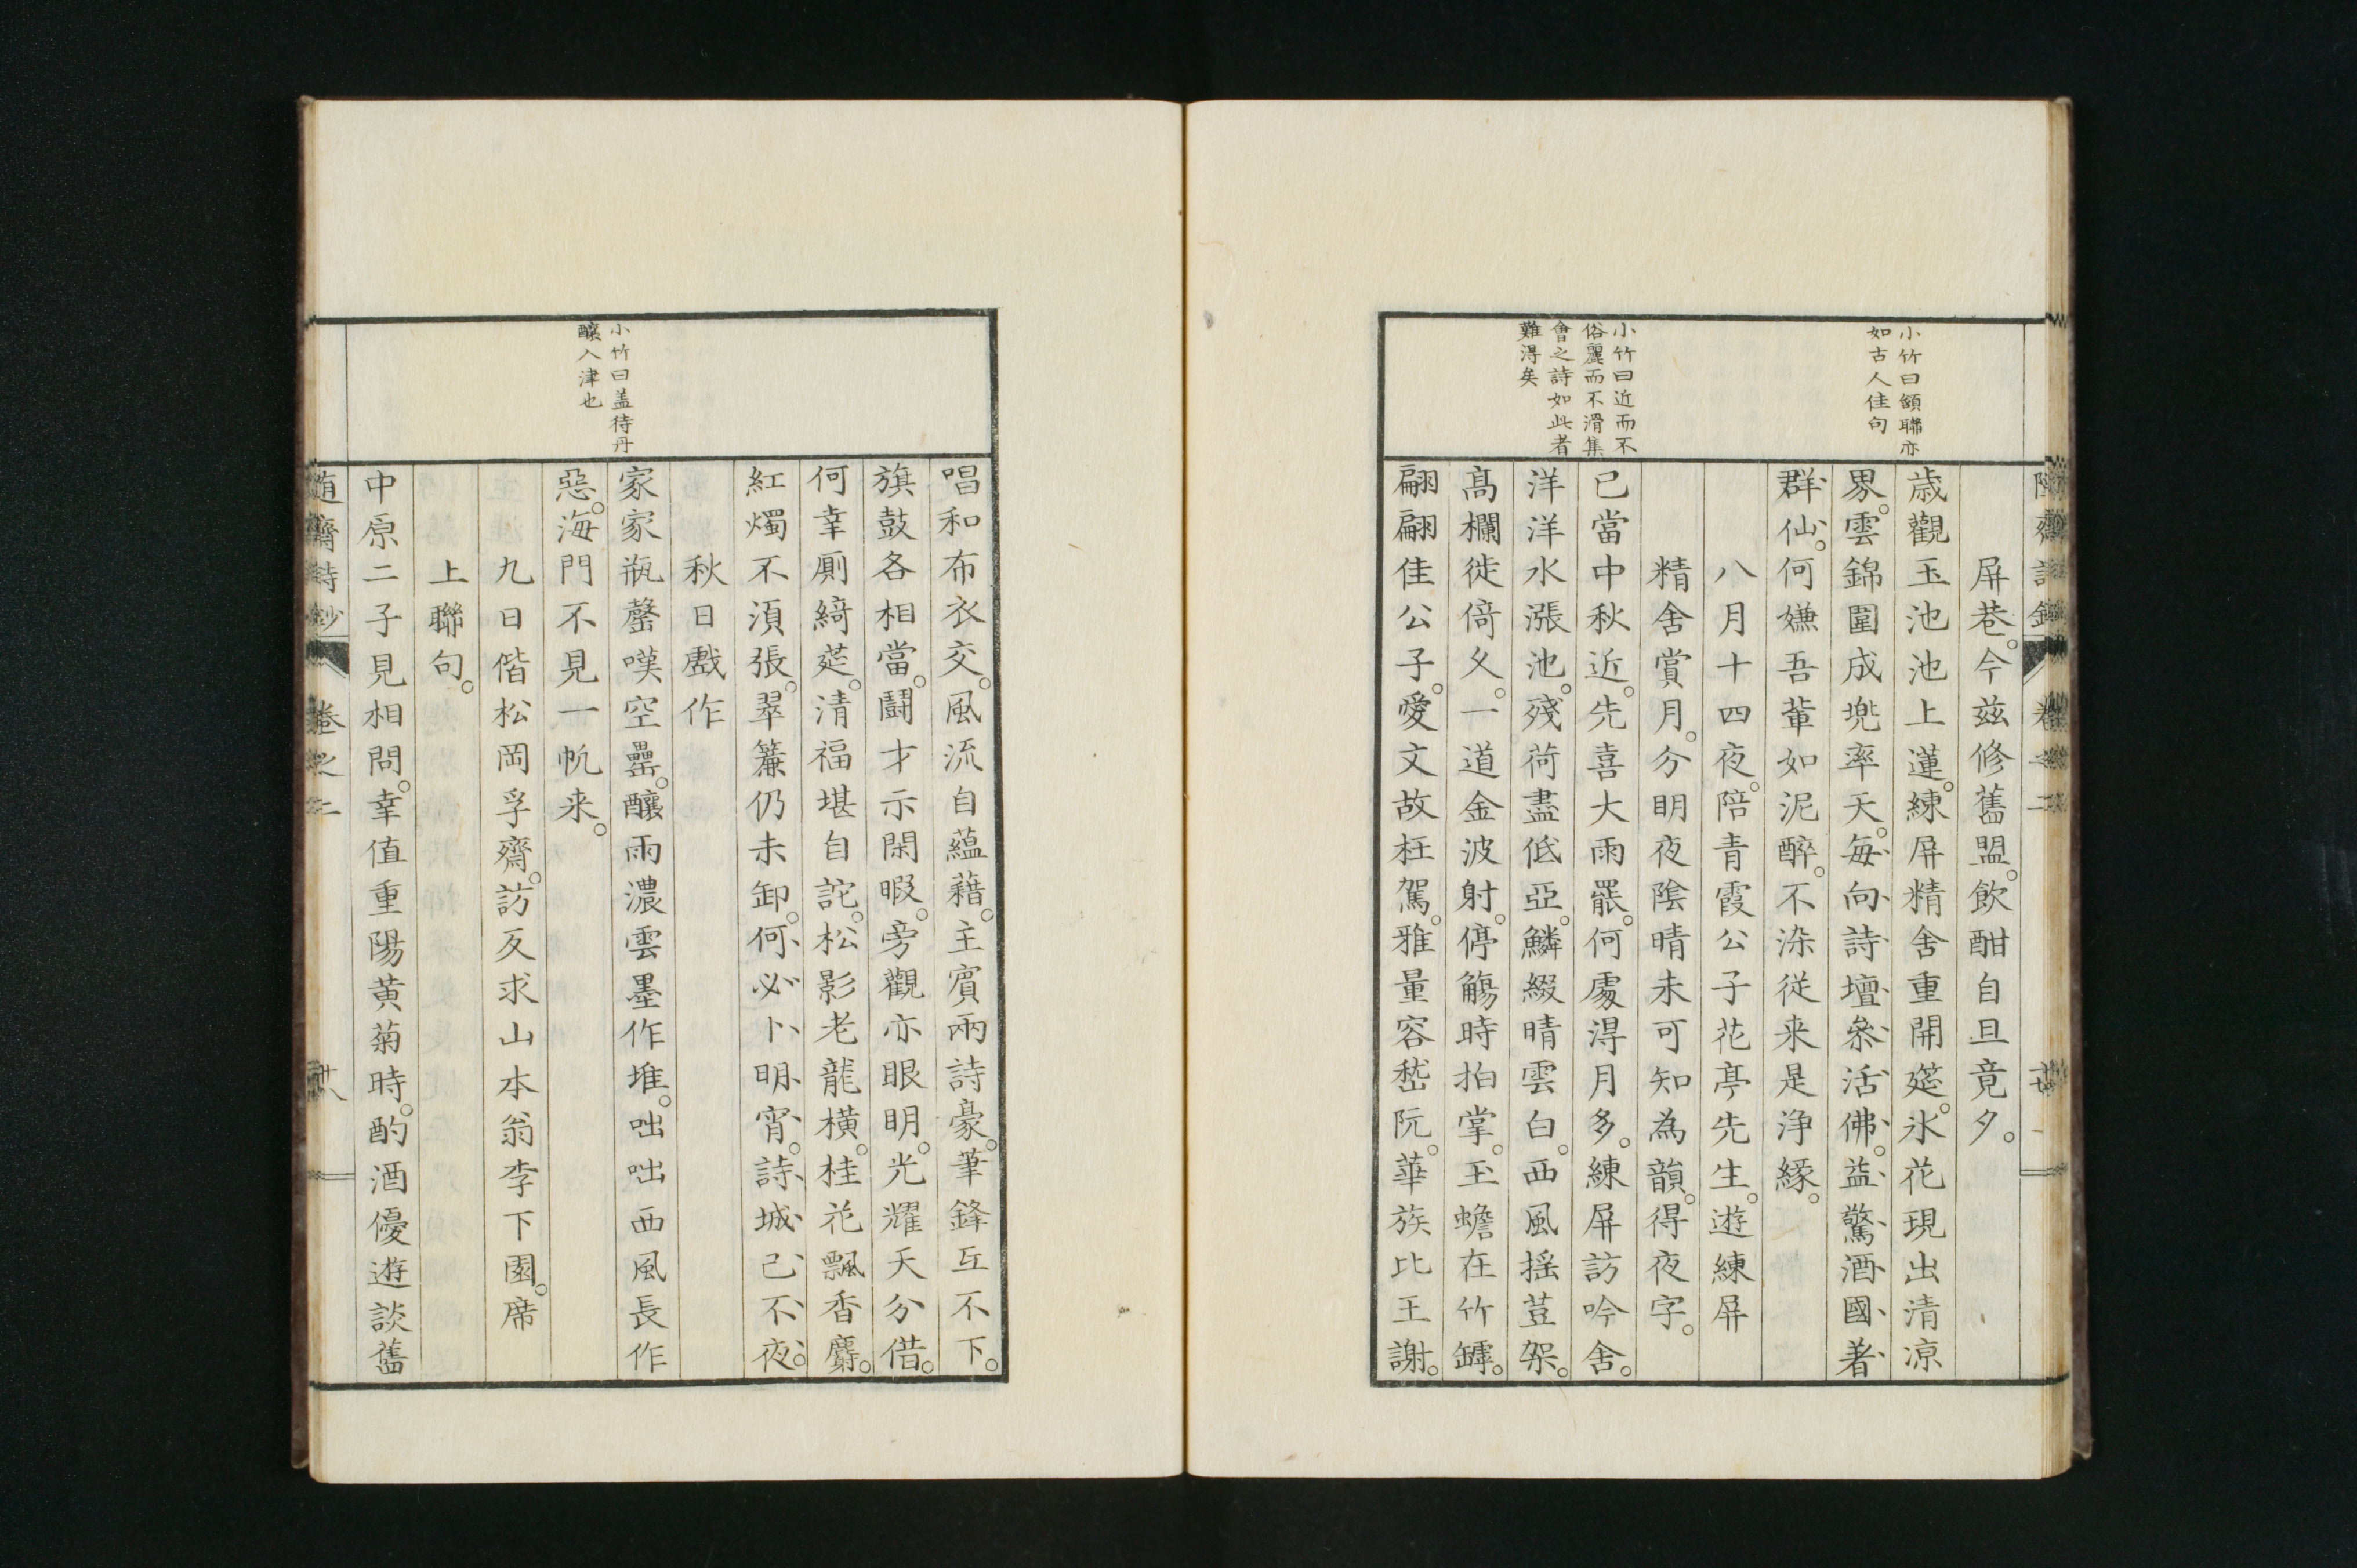 小竹曰頷聯亦
如古人佳句
小竹曰近而不
俗麗而不滑集
會之詩如此者
難得矣
屏巷。今茲修舊盟。飲酣自旦竟夕。
歳觀玉池池上蓮。練屏精舍重開筵。氷花現出清凉
界。雲錦圍成兠率天。毎向詩壇叅活佛。益驚酒國著
群仙。何嫌吾輩如泥醉。不染従来是浄縁。
八月十四夜。陪青霞公子花亭先生。遊練屏
精舍賞月。分明夜陰晴未可知為韻。得夜字。
已當中秋近。先喜大雨罷。何處得月多。練屏訪吟舍。
洋洋水漲池。殘荷盡低亞。鱗綴晴雲白。西風揺荳架。
髙欄徙倚久。一道金波射。停觴時拍掌。玉蟾在竹罅。
翩翩佳公子。愛文故枉駕。雅量容嵆阮。華族比王謝。
小竹曰盖待丹
釀入津也
唱和布衣交。風流自蘊藉。主賓兩詩豪。筆鋒互不下。
旗鼓各相當。鬪才示閑暇。旁觀亦眼明。光耀天分借。
何幸厠綺莚。清福堪自詫。松影老龍横。桂花飄香麝。
紅燭不須張。翠簾仍未卸。何必卜明宵。詩城已不夜。
秋日戲作
家家瓶罄嘆空罍。釀雨濃雲墨作堆。咄咄西風長作
惡。海門不見一帆来。
九日偕松岡孚齋。訪反求山本翁李下園。席
上聯句。
中原二子見相問。幸值重陽黄菊時。酌酒優遊談舊
随齋詩鈔 卷之二 廿八